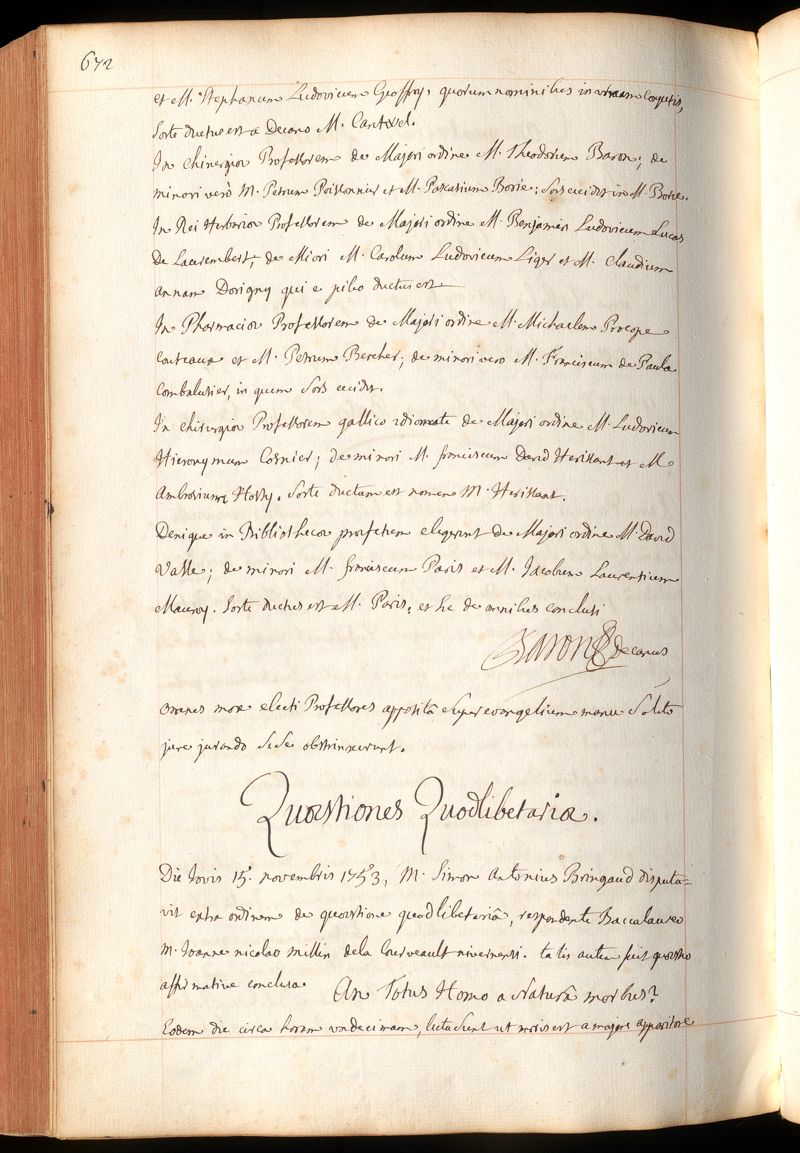 672
et M. Stephanum Ludovicum Geoffroy, quorum nominibus in urnam conjectis,
sorte ductus est a Decano M. Cantwel.
In chirurgiæ Professorem de Majori ordine M. Theodorum Baron; de
minori verò M. Petrum Poissonnier et M. Pascasium Borie; sors cecidit in M. Borie.
In Rei Herbariæ Professorem de Majori ordine M. Benjamin Ludovicum Lucas
De Laurembert, de Miori M. Carolum Ludovicum Liger et M. Claudium
annam Dorigny qui e pileo ductus est
In Pharmaciæ Professorem de Majori ordine M. Michaelem Procope
couteaux et M. Petrum Bercher; de minori vero M. Franciscum de Paula
Combalusier, in quem sors cecidit.
In chirurgiæ Professorem gallico idiomate de Majori ordine M. Ludovicum
Hieronymum Cosnier; de minori M. franciscum David Herissant et M
Ambrosium Hosty. Sorte ductum est nomen M. Herissant.
Denique in Bibliothecæ præfectum elegerunt de Majori ordine M. David
Vasse; de minori M. franciscum Paris et M. Jacobum Laurentium
Mauroy. Sorte ductus est M. Paris, et sic de omnibus conclusi
Baron Decanus
omnes mox electi Professores appositâ super evangelium manu solito
jure jurando sese obstrinxerunt.
Quæstiones Quodlibetariæ.
Die Jovis 15ª novembris 1753, M. Simon Antonius Bringaud disputa=
vit extra ordinem de quæstione quodlibetariâ, respondente Baccalaureo
M. Joanne nicolao millin dela Courveault nivernensi. talis autem fuit quæstio
affirmative conclusa. An Totus Homo a Naturâ morbus?
Eodem die circa horam undecimam, lecta sunt ut moris est a majore apparitore